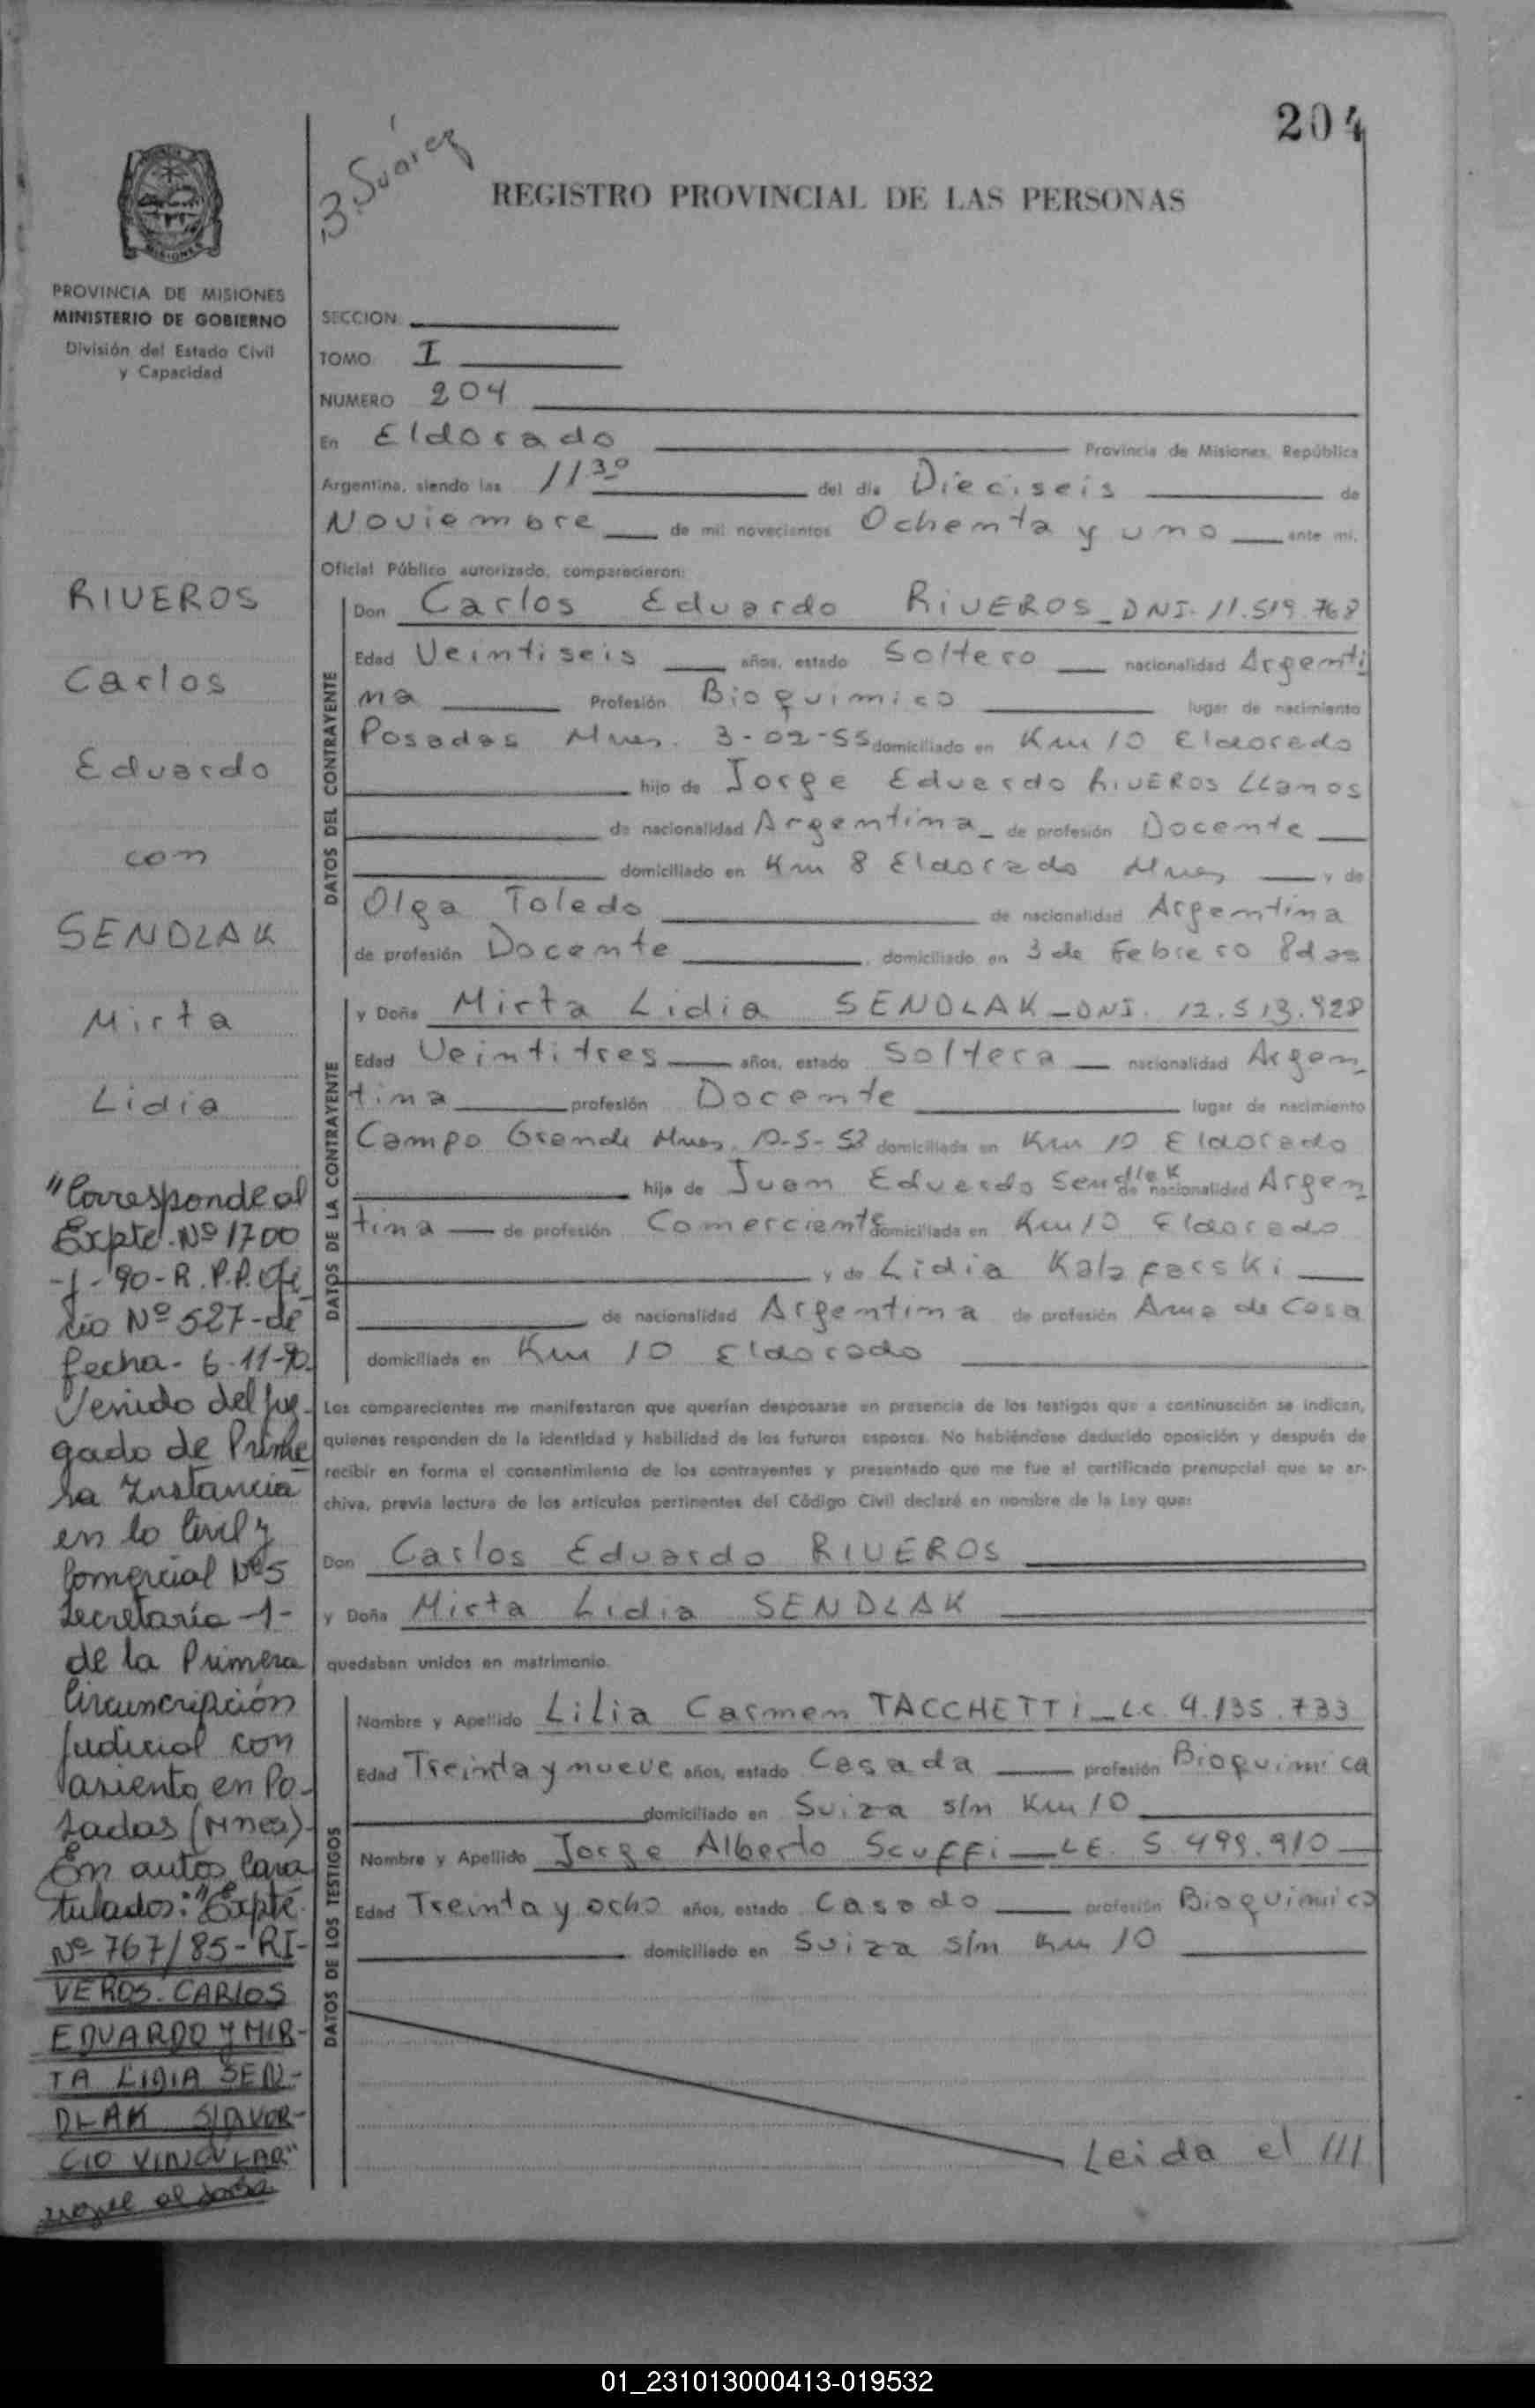 204
B. Suárez
REGISTRO PROVINCIAL DE LAS PERSONAS
MISIONES
PROVINCIA DE MISIONES
MINISTERIO DE GOBIERNO
División del Estado Civil
y Capacidad
SECCION
TOMO I
NUMERO 204
En Eldorado Provincia de Misiones, República
Argentina, siendo las 11.30 del día Dieciseis de
Noviembre de mil novecientos Ochenta y uno ante mí,
Oficial Público autorizado, comparecieron:
DATOS DEL CONTRAYENTE
Don Carlos Eduardo RIVEROS_DNI-11.519.768
Edad Veintiseis años, estado Soltero nacionalidad Argenti
na Profesión Bioquimico lugar de nacimiento
Posadas Mnes. 3-02-55 domiciliado en Km 10 Eldorado
hijo de Jorge Eduardo RIVEROS LLanos
de nacionalidad Argentina de profesión Docente
domiciliado en Km 8 Eldorado Mnes y de
Olga Toledo de nacionalidad Argentina
de profesión Docente domiciliado en 3 de Febrero Pdas
DATOS DE LA CONTRAYENTE
y Doña Mirta Lidia SENDLAK_DNI. 12.513.928
Edad Veintitres años, estado Soltera nacionalidad Argen
tina profesión Docente lugar de nacimiento
Campo Grande Mnes. 10-5-58 domiciliada en Km 10 Eldorado
hija de Juan Eduardo Sendlak de nacionalidad Argen
tina de profesión Comerciante domiciliada en Km 10 Eldorado
y de Lidia Kalafarski
de nacionalidad Argentina de profesión Ama de Casa
domiciliada en Km 10 Eldorado
Los comparecientes me manifestaron que querían desposarse en presencia de los testigos que a continuación se indican,
quienes responden de la identidad y habilidad de los futuros esposos. No habiéndose deducido oposición y después de
recibir en forma el consentimiento de los contrayentes y presentado que me fue el certificado prenupcial que se ar-
chiva, previa lectura de los artículos pertinentes del Código Civil declaré en nombre de la Ley que:
Don Carlos Eduardo RIVEROS
y Doña Mirta Lidia SENDLAK
quedaban unidos en matrimonio.
DATOS DE LOS TESTIGOS
Nombre y Apellido Lilia Carmen TACCHETTI_LC. 4.135.733
Edad Treinta y nueve años, estado Casada profesión Bioquimica
domiciliado en Suiza s/n Km 10
Nombre y Apellido Jorge Alberto Scuffi LE. 5.499.910
Edad Treinta y ocho años, estado Casado profesión Bioquimico
domiciliado en Suiza s/n Km 10
Leida el ///
RIVEROS
Carlos
Eduardo
con
SENDLAK
Mirta
Lidia
"Corresponde al
Expte. Nº 1700
-J-90-R.P.P. Ofi
cio Nº 527-de
fecha- 6-11-90
Venido del Juz-
gado de Prime
ra Instancia
en lo Civil y
Comercial Nº 5
Secretaría -1-
de la Primera
Circuncripción
Judicial con
asiento en Po-
sadas (Mnes)-
En autos cara
tulados: "Expte.
Nº 767/85-RI-
VEROS-CARLOS
EDUARDO y MIR-
TA LIDIA SEN-
DLAK S/DIVOR-
CIO VINCULAR"
sigue al dorso
01_231013000413-019532